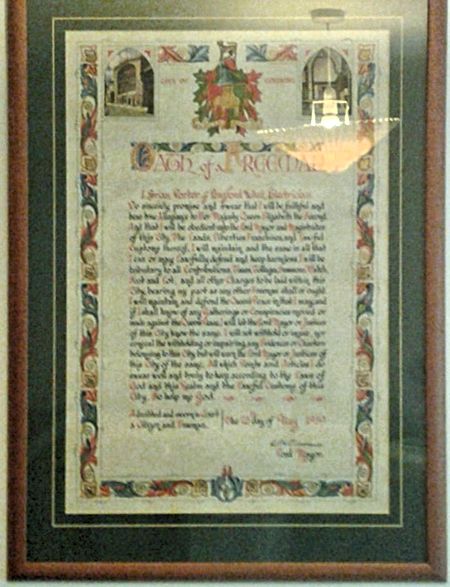 CITY OF COVENTRY
OATH of a FREEMAN
I Brian of Electrician
Do sincerely promise and swear that I will be faithful and
bear true Allegiance to Her Majesty Queen Elizabeth the Second
And that I will be obedient to the Lord Mayor and Magistrates
of this City. The Lands, Liberties Franchises, and Lawful
Customs thereof, I will maintain, and the same in all that
I can or may Lawfully defend and keep harmless. I will be
tributary to all Contributions, Taxes, Tallages, Summons, Watch,
Scot and Lot, and all other Charges to be laid within this
City, bearing my part as any other Freeman shall or ought.
I will maintain and defend the Queen's Peace in that I may, and
if I shall know of any Gatherings or Conspiracies moved or
made against the Queen's Peace, I will let the Lord Mayor or Justices
of this City know the same. I will not withhold or impair, nor
conceal the withholding or impairing any Evidences or Charters
belonging to this City, but will warn the Lord Mayor or Justices of
this City of the same. All which Points and Articles I do
swear well and truly to keep according to the Laws of
God and this Realm and the Lawful Customs of this
City. So help my God.
Admitted and sworn in Court
a Citizen and Freeman
the day of May
Lord Mayor.